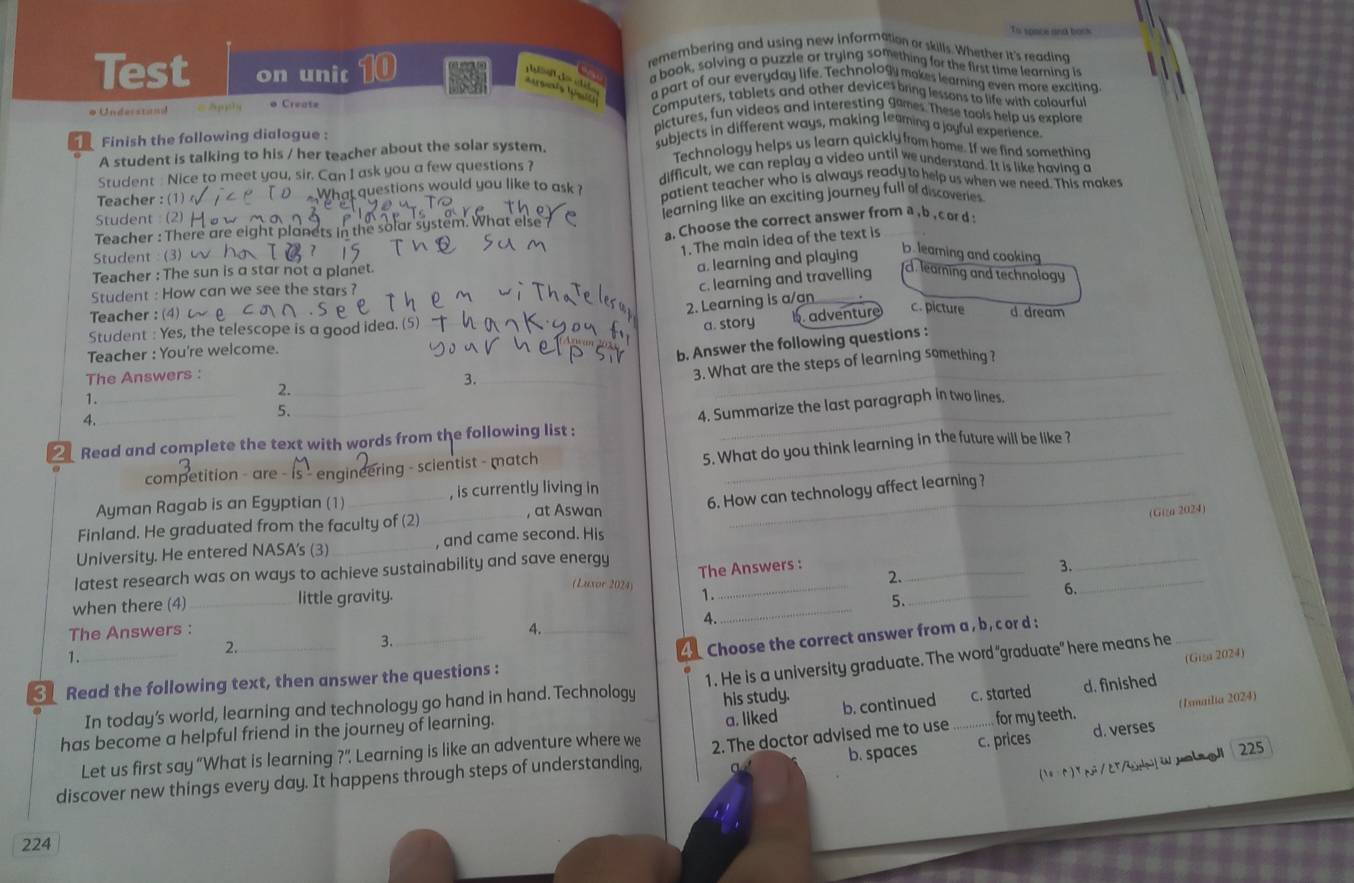 Test on unit 10
Understand Apply Create
1 Finish the following dialogue :
A student is talking to his / her teacher about the solar system.
Student : Nice to meet you, sir. Can I ask you a few questions ?
Teacher : (1) Nice To meet you To What questions would you like to ask ?
Student : (2) How many planeTs are there
Teacher : There are eight planets in the solar system. What else ?
Student : (3) is The sun
Teacher : The sun is a star not a planet.
Student : How can we see the stars ?
Teacher : (4) we can . see Them
Student : Yes, the telescope is a good idea. (5) Thank you for
your help sir
Teacher : You're welcome.
The Answers :
1. 2. 3.
4. 5.
2 Read and complete the text with words from the following list :
3
competition - are - is - engineering - scientist - match
Ayman Ragab is an Egyptian (1) , is currently living in
Finland. He graduated from the faculty of (2) , at Aswan
University. He entered NASA's (3) , and came second. His
latest research was on ways to achieve sustainability and save energy
when there (4) little gravity. (Luxor 2024)
The Answers :
1. 2. 3. 4.
3 Read the following text, then answer the questions :
In today's world, learning and technology go hand in hand. Technology
has become a helpful friend in the journey of learning.
Let us first say "What is learning ?". Learning is like an adventure where we
discover new things every day. It happens through steps of understanding,
224
To space and back
remembering and using new information or skills. Whether it's reading
a book, solving a puzzle or trying something for the first time learning is
a part of our everyday life. Technology makes learning even more exciting.
Computers, tablets and other devices bring lessons to life with colourful
pictures, fun videos and interesting games. These tools help us explore
subjects in different ways, making learning a joyful experience.
Technology helps us learn quickly from home. If we find something
difficult, we can replay a video until we understand. It is like having a
patient teacher who is always ready to help us when we need. This makes
learning like an exciting journey full of discoveries.
a. Choose the correct answer from a , b , c or d :
1. The main idea of the text is
a. learning and playing b. learning and cooking
c. learning and travelling d. learning and technology
2. Learning is a/an .
a. story b. adventure c. picture d. dream
b. Answer the following questions :
3. What are the steps of learning something ?
4. Summarize the last paragraph in two lines.
5. What do you think learning in the future will be like ?
6. How can technology affect learning ?
(Giza 2024)
The Answers :
1. 2. 3.
4. 5. 6.
4 Choose the correct answer from a , b , c or d :
1. He is a university graduate. The word "graduate" here means he
his study. (Giza 2024)
a. liked b. continued c. started d. finished
2. The doctor advised me to use for my teeth. (Ismailia 2024)
b. spaces c. prices d. verses
225